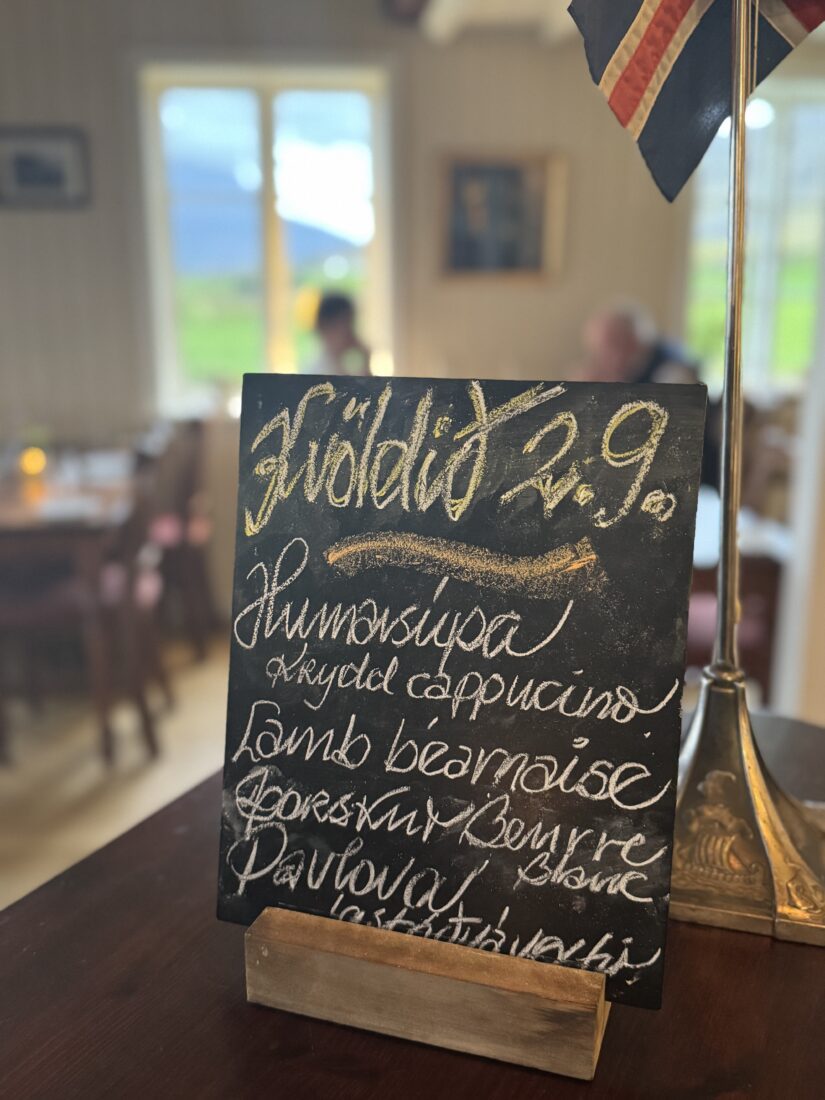 Kvöldið 2.9.
Humarsúpa
Krydd cappucino.
Lamb béarnaise
Þorskur Beurre
Blanc
Pavlova